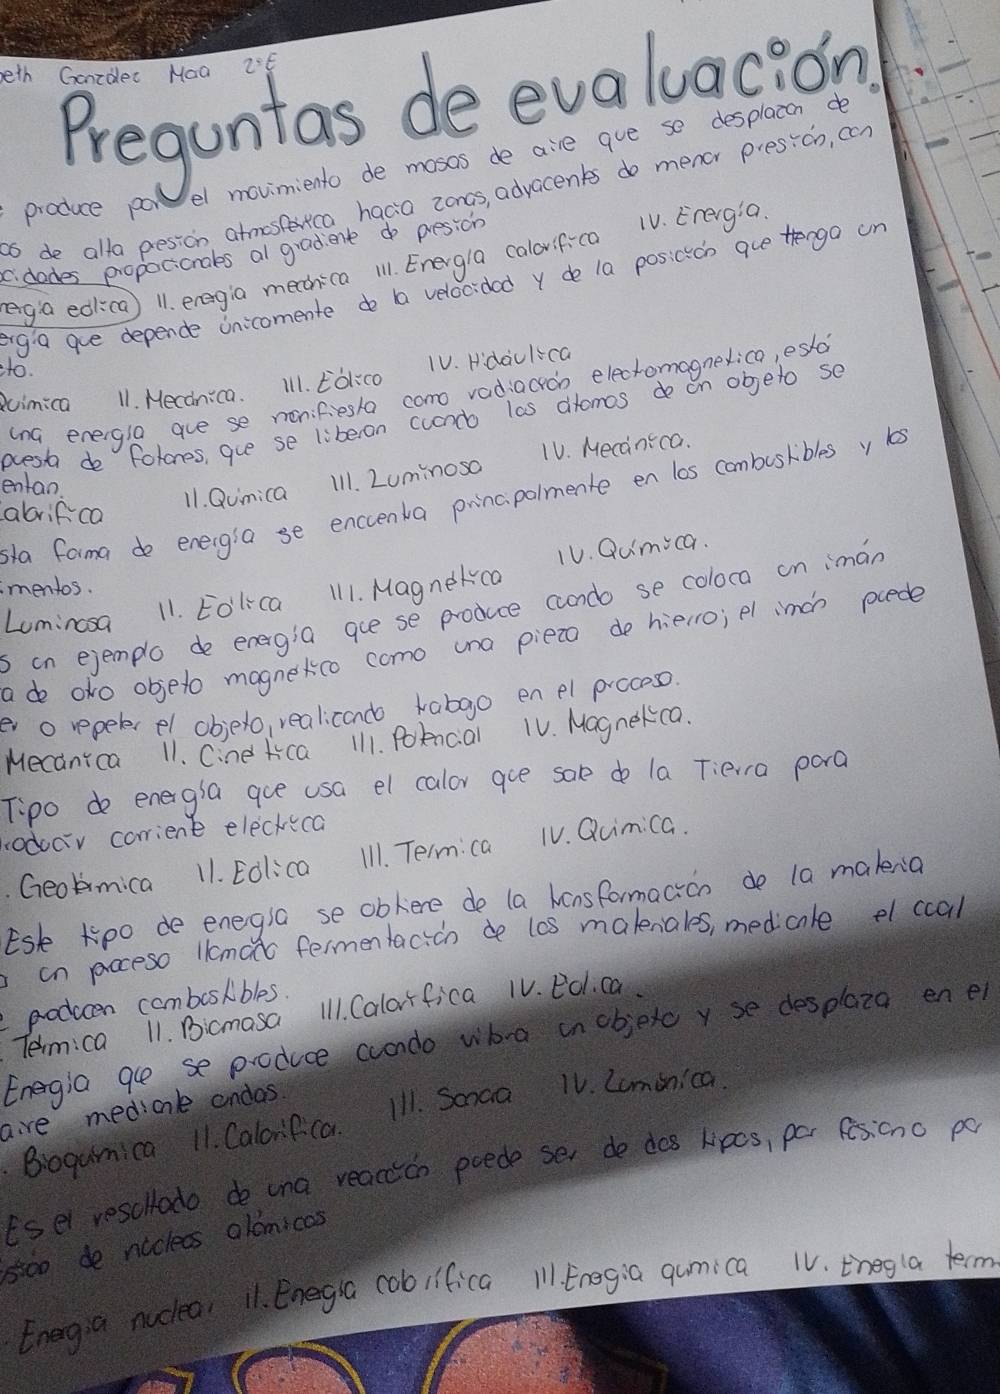 eth González Maa 2°E
Preguntas de evaluación.
produce por el movimiento de masas de aire que se desplazan de
as de alta presión atmosferica hacia zonas, adyacentes de menor presión, con
cidades proporcionales al gradiente de presión
ergia eolica) II. energia mecanica III. Energia calorifica IV. Energia.
ergia que depende únicamente de la velocidad y de la posición que tenga un
eto.
Quimica II. Mecánica. III. Eólico IV. Hidáulica
una energia que se manifiesta como radiación electomagnetica, está
puesta de fotones, que se liberan cuando los átomos de un objeto se
entan.
Calorifica II. Quimica III. Luminosa IV. Mecánica.
sta forma de energia se encuenta principalmente en los combustibles y los
imentos.
Luminosa II. Eólica III. Magnetica IV. Quimica.
s un ejemplo de energia que se produce cuando se coloca un imán
a de otro objeto magnetico como una pieza de hierro; el iman puede
er o repeler el objeto, realicando trabajo en el proceso.
Mecanica II. Cinetica III. Potencial IV. Magnetica.
Tipo de energia que usa el calor que sale de la Tierra para
roducir corriente electrica
. Geotermica II. Eólica III. Termica IV. Quimica.
Este tipo de energia se obtiene de la transformación de la materia
un proceso llamado fermentación de los materiales, mediante el cual
e producen combustibles.
. Termica II. Biomasa III. Calorifica IV. Eolica.
Energia que se produce cuando vibra un objeto y se desplaza en el
aire mediante ondas.
. Bioquimica II. Calorifica. III. Sonora IV. Luminica.
Es el resultado de una reacción puede ser de dos tipos, por fisiono por
sion de núcleos atómicos
. Energia nuclear II. Enegia calorifica III. Enegia quimica IV. Enegia term